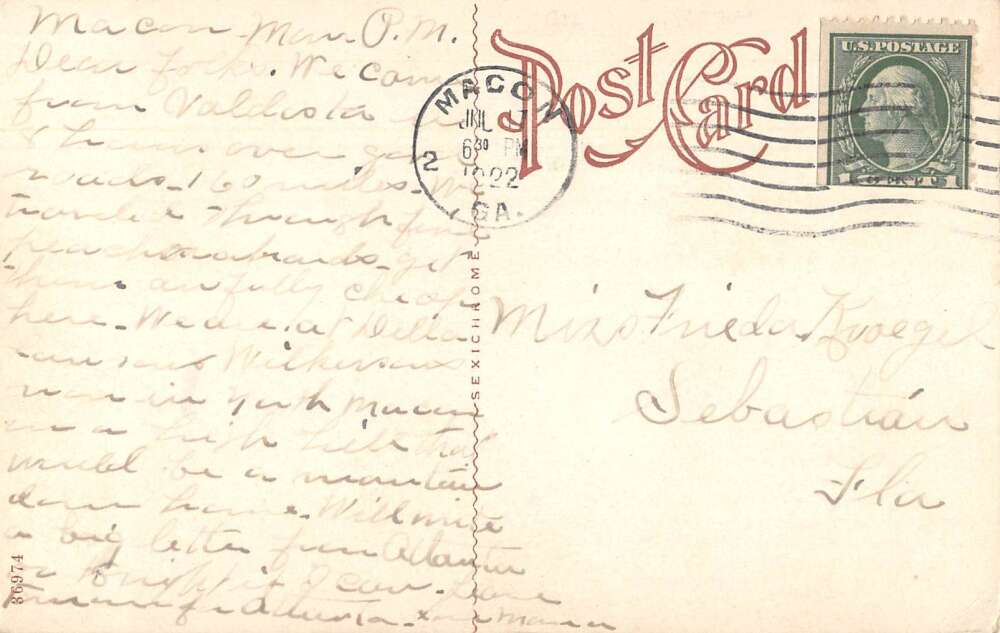 Macon - Mon. P.M.
Dear folks. We came
from Valdosta in
hours over good
roads - 160 miles - We
traveled through fine
peach orchards - get
them awfully cheap
here. We are at Della
Wilkersons
now in North Macon
on a high hill that
would be a mountain
down home. Will write
a big letter from Atlanta
tonight if I can. Leave
for Atlanta. Mama
36974
SEXICHROME
Post Card
MACON
JUL
6 30 PM
1922
GA.
2
U.S. POSTAGE
1 CENT 1
Miss Frieda Kroegel
Sebastian
Fla